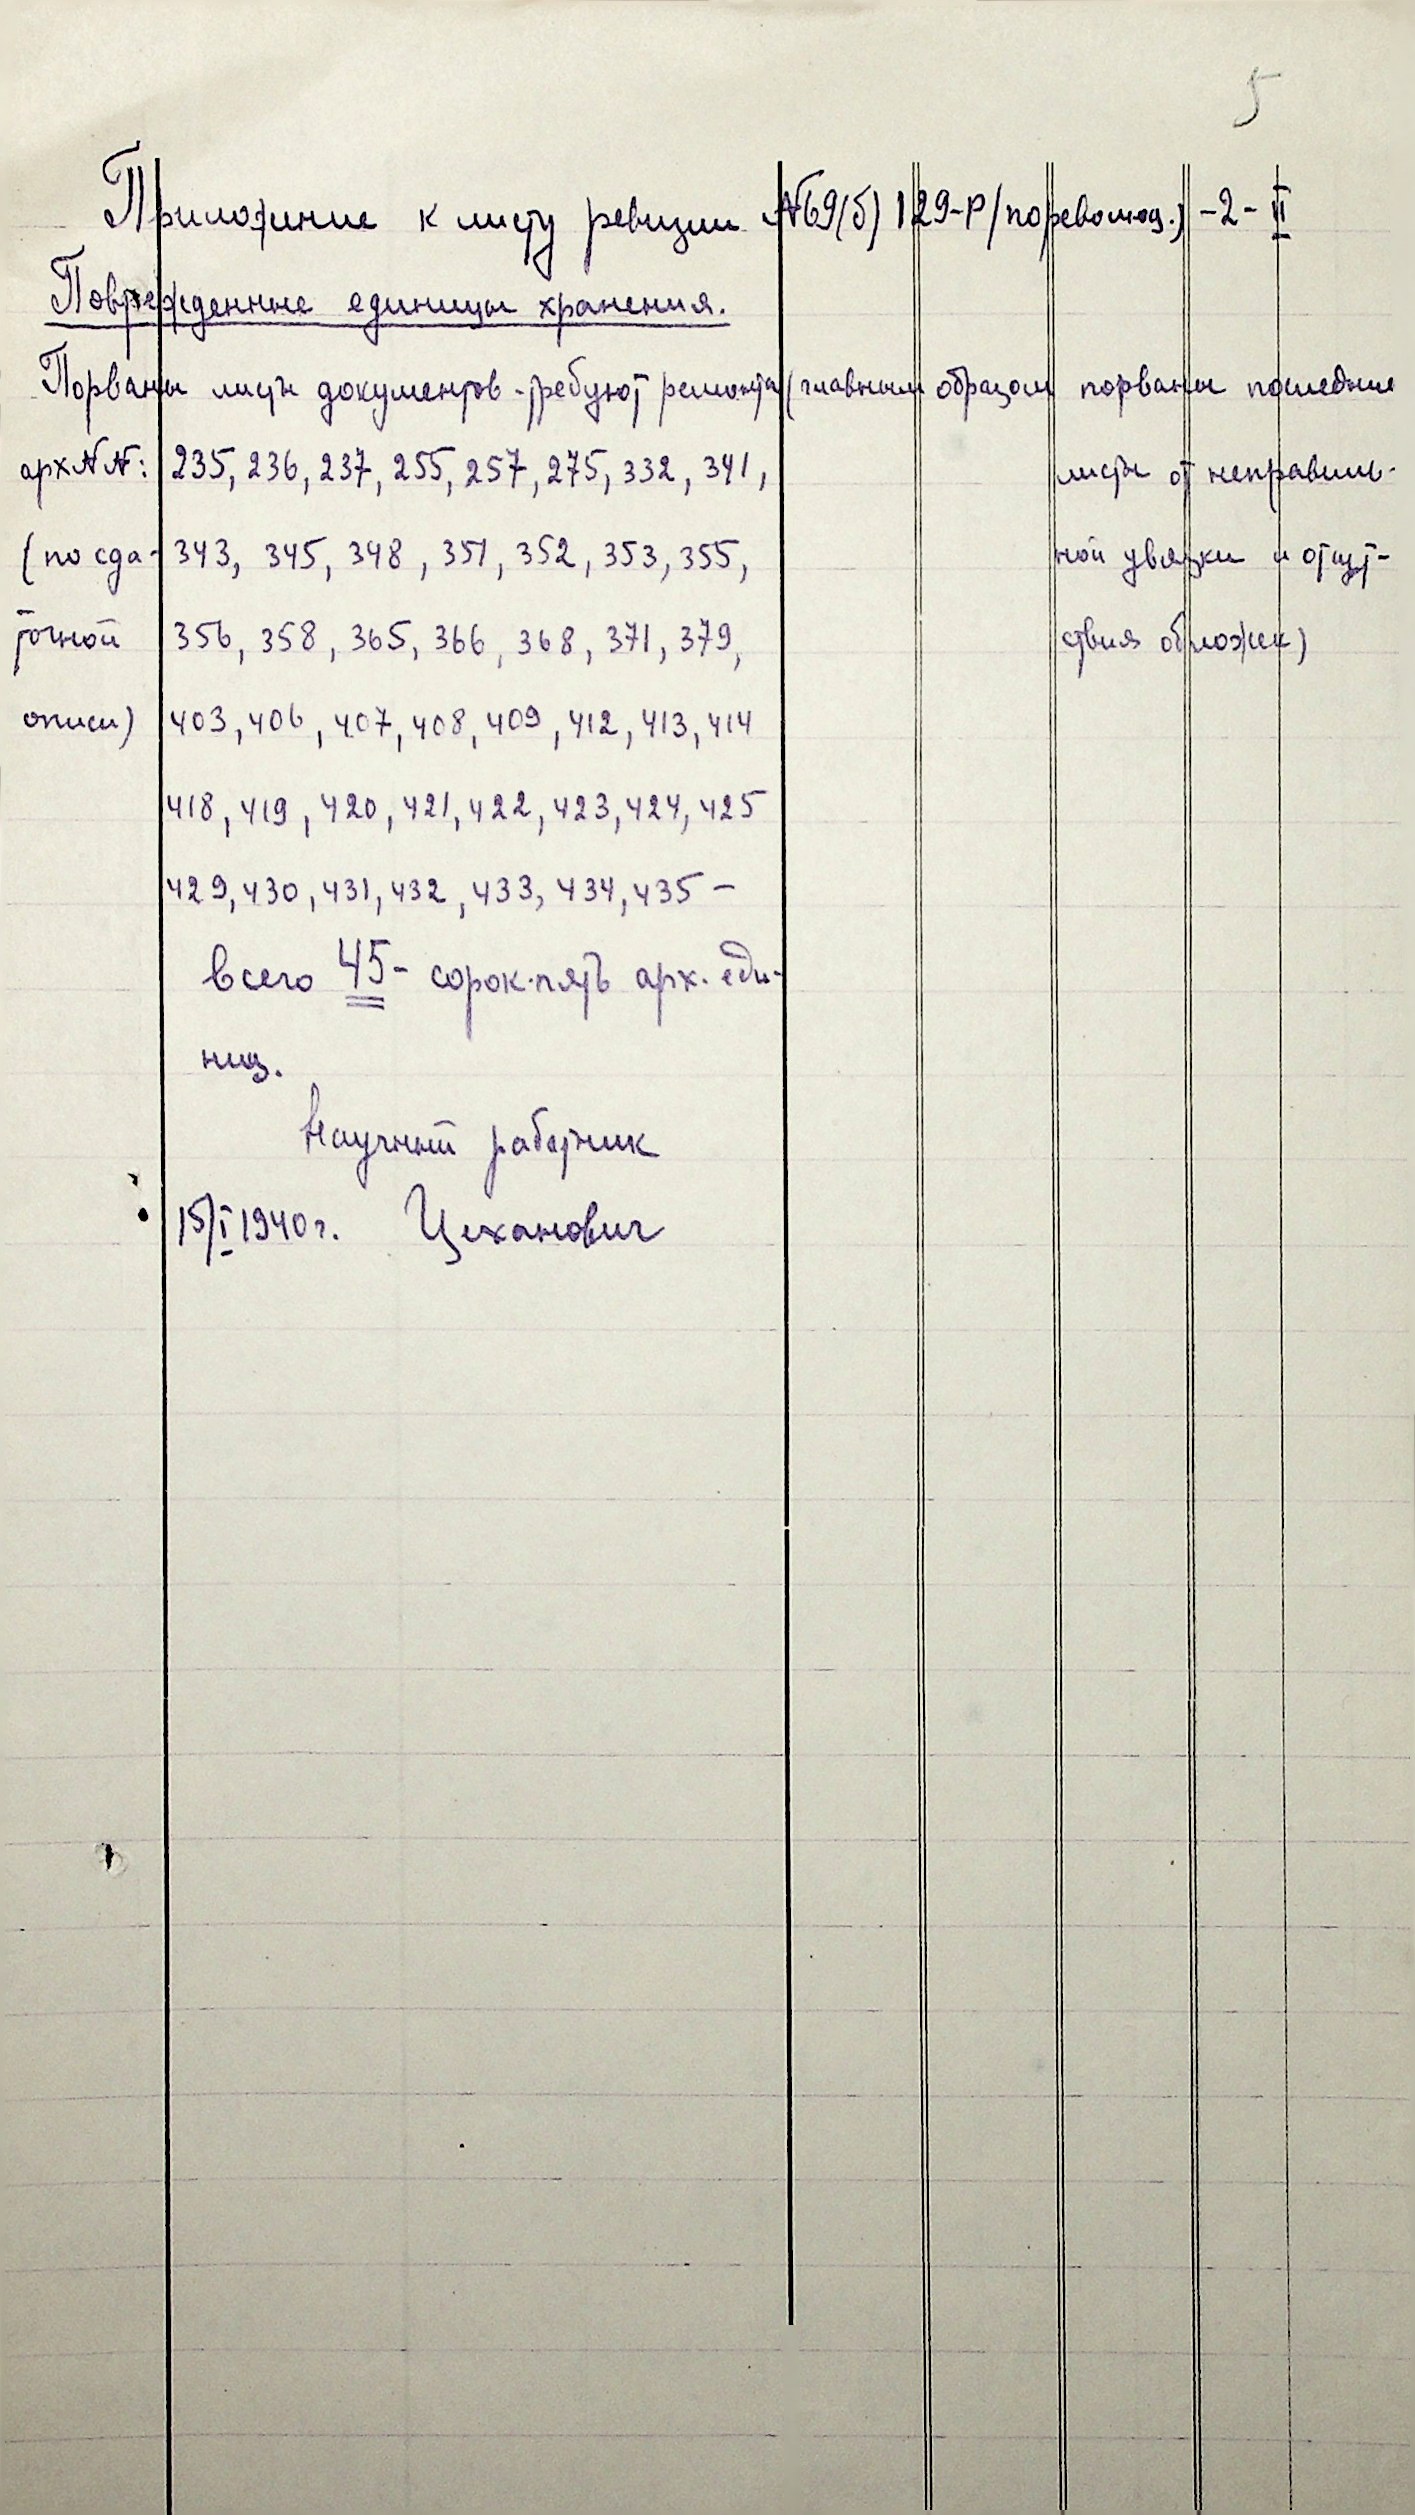 5
Приложение к листу ревизии №69(б) 129-Р/пореволюц.) -2- II
Поврежденные единицы хранения.
Порваны листы документов - требуют ремонта (главным образом порваны последние
арх№№: 235, 236, 237, 255, 257, 275, 332, 341, листы от неправиль-
(по сда- 343, 345, 348, 351, 352, 353, 355, ной увязки и отсут-
точной 356, 358, 365, 366, 368, 371, 379, ствия обложек)
описи) 403, 406, 407, 408, 409, 412, 413, 414
418, 419, 420, 421, 422, 423, 424, 425
429, 430, 431, 432, 433, 434, 435 -
всего 45 - сорок-пять арх. еди-
ниц.
Научный работник
15/I 1940 г. Цеханович